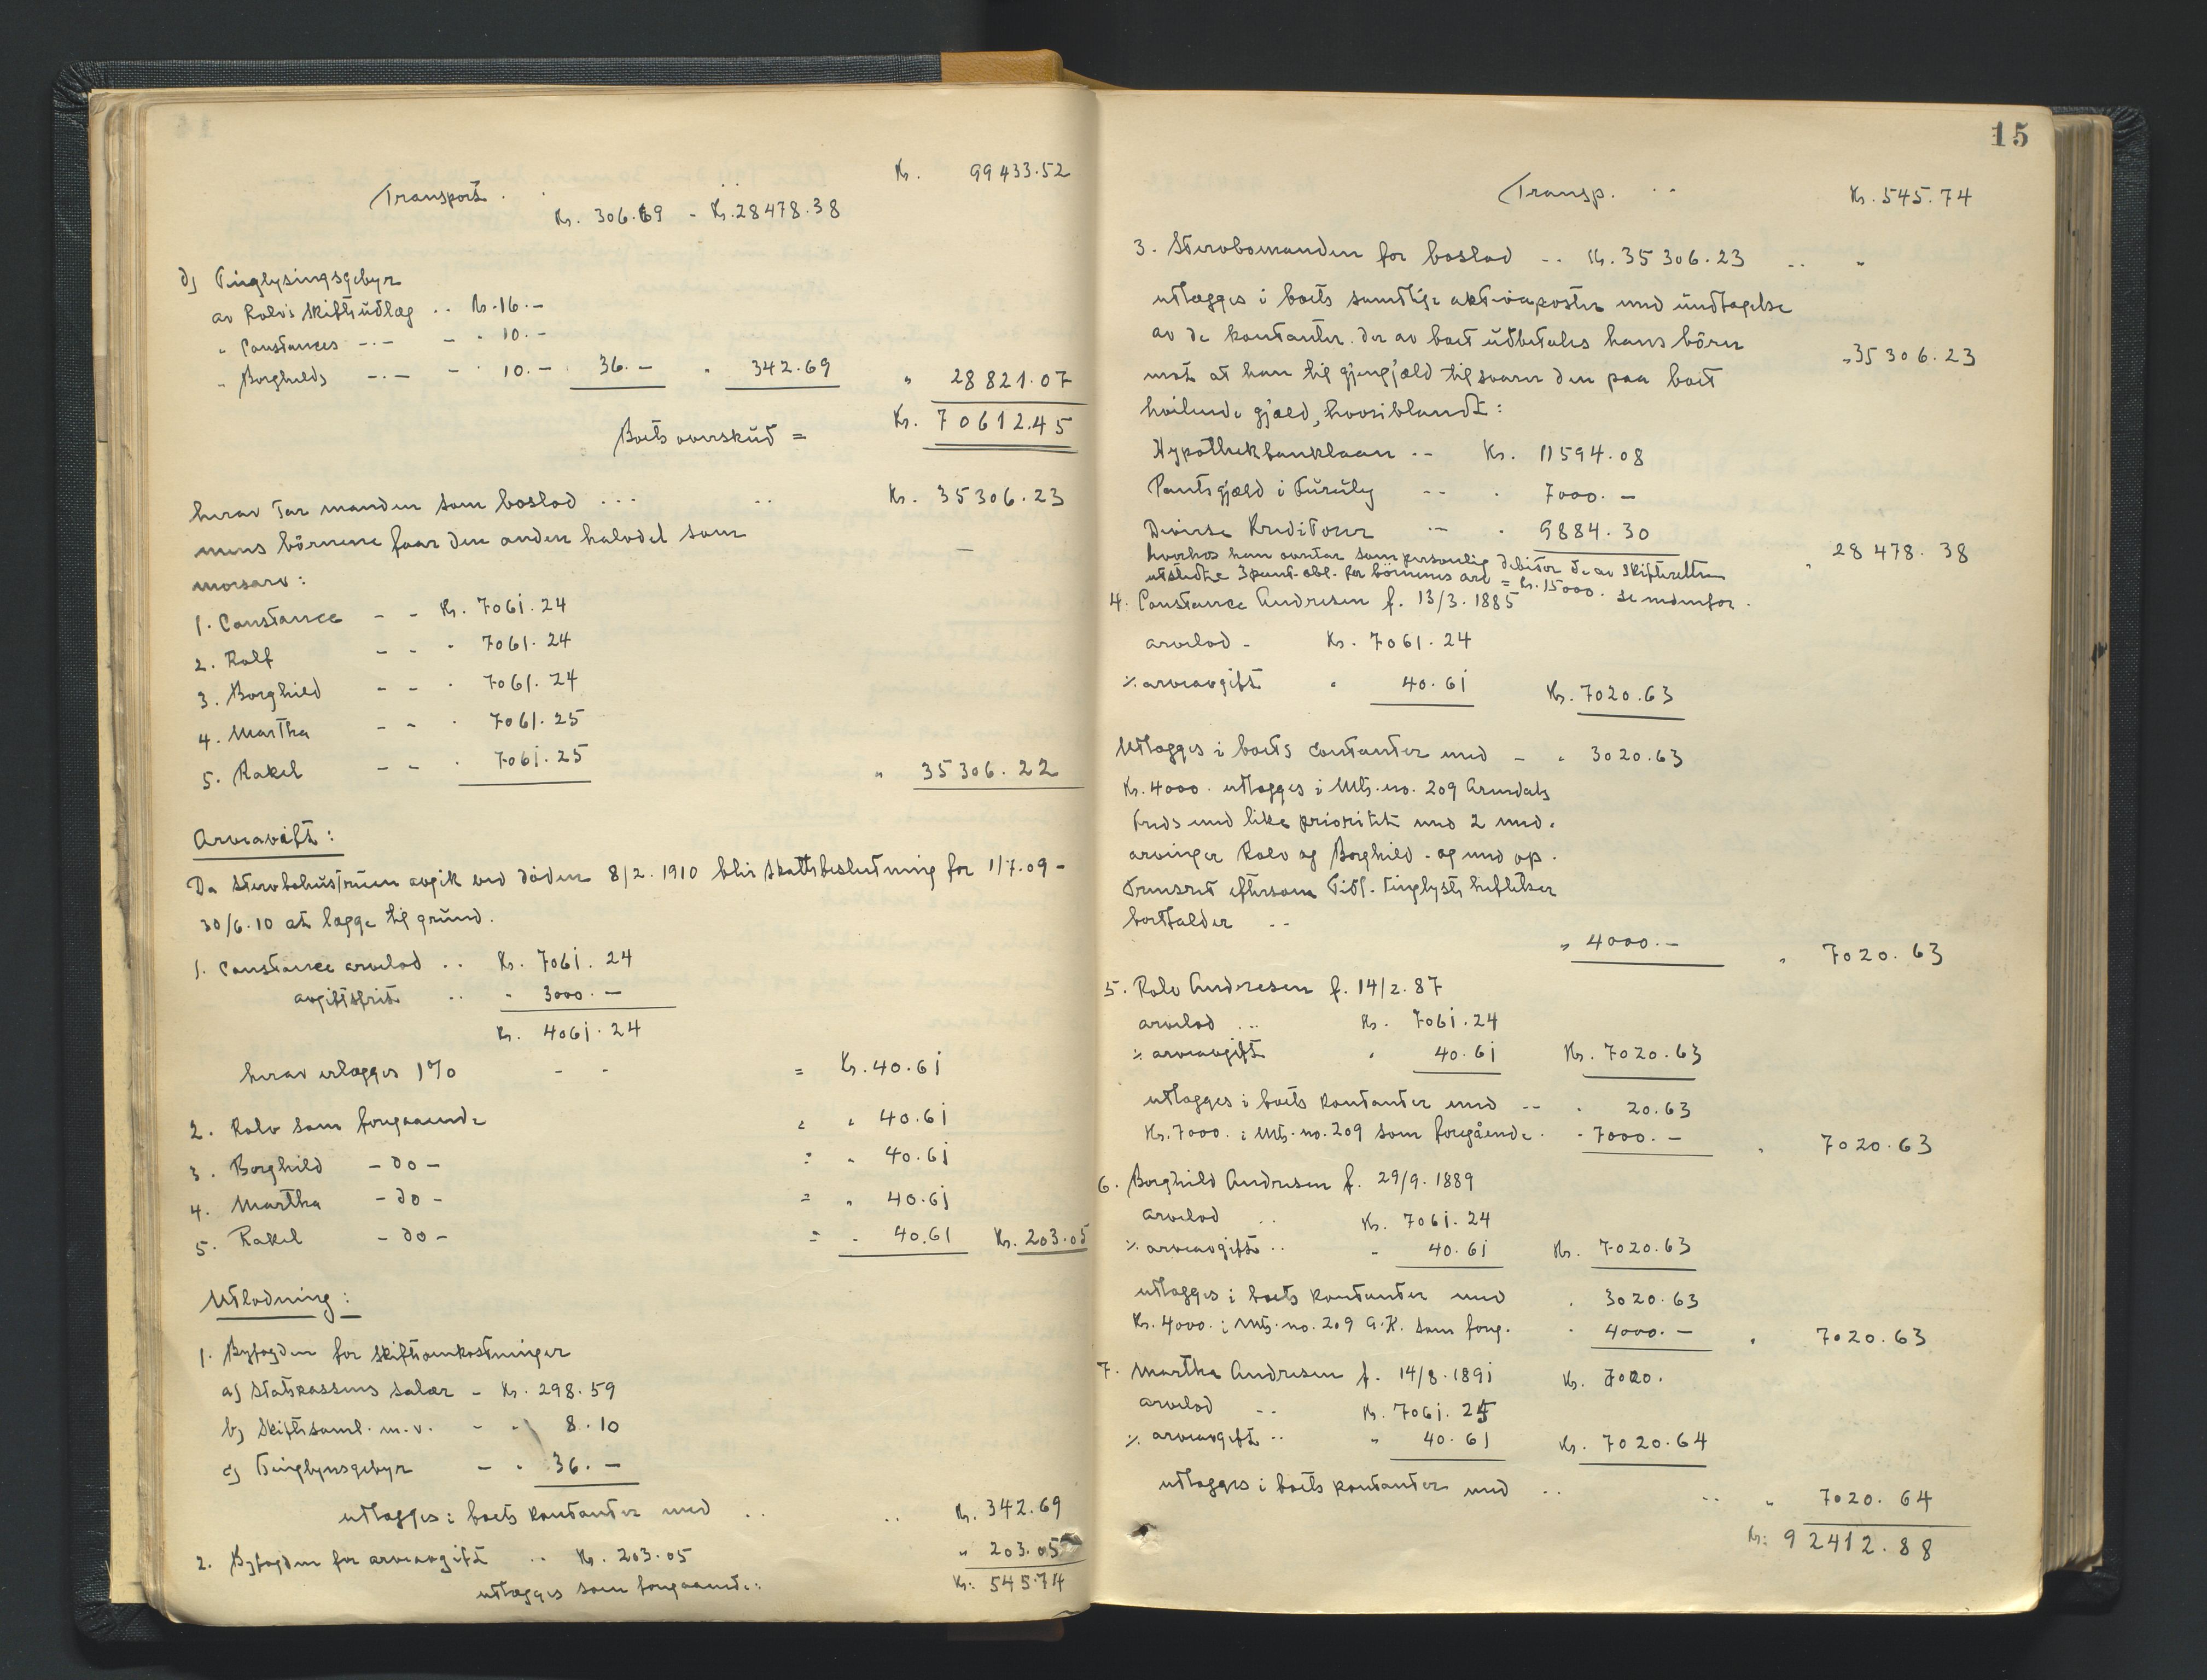 Kr. 99433.52
Transport . . ..
Kr. 306.69 - Kr. 28478.38
d) Tinglysingsgebyr
av Rolv's skifteutlæg .. Kr. 16.-
" Constances -.- - " 10.-
" Borghilds -.- - " 10.- 36.- " 342.69 " 28821.07
Boets overskud = Kr. 70612.45
herav tar manden som boslod ... .. Kr. 35306.23
mens börnene faar den anden halvdel som
morsarv: —
1. Constance - - Kr. 7061.24
2. Rolf - - " 7061.24
3. Borghild - - " 7061.24
4. Martha - - " 7061.25
5. Rakel - - " 7061.25 " 35306.22
Arveavgift:
Da Stervbohustruen avgik ved döden 8/2. 1910 blir Skattebeslutning for 1/7.09 -
30/6.10 at lægge til grund.
1. Constance arvelod .. Kr. 7061.24
avgiftsfrit .. " 3000.-
Kr. 4061.24
herav erlægges 1% - - = Kr. 40.61
2. Rolv som foregaaende = " 40.61
3. Borghild - do - = " 40.61
4. Martha - do - = " 40.61
5. Rakel - do - = " 40.61 Kr. 203.05
Utlodning:
1. Byfogden for skifteomkostninger
a) Statskassens salær - Kr. 298.59
b) Skiftesaml. m.v. - " 8.10
c) Tinglysnsgebyr - " 36.-
utlægges i boets kontanter med .. .. Kr. 342.69
2. Byfogden for arveavgift .. Kr. 203.05 " 203.05
utlægges som foregaaende: Kr: 545.74
15
Transp. .. Kr. 545.74
3. Stervbomanden for boslod .. Kr. 35306.23 .. "
utlægges i boets samtlige aktivaposter med undtagelse
av de kontanter der av boet utbetales hans börn
mot at han til gjengjæld tilsvarer den paa boet " 35306.23
hvilende gjæld, hvoriblandt:
Hypothekbanklaan .. Kr. 11594.08
Pantegjæld i Furuly .. " 7000.-
Diverse Kreditorer .. " 9884.30 " 28478.38
hvorhos han overtar som personlig debitor de av Skifteretten
utstedte 3 pant-obl. for börnenes arv = Kr. 15000. se nedenfor.
4. Constance Andresen f. 13/3. 1885
arvelod - Kr. 7061.24
% arveavgift " 40.61 Kr. 7020.63
Utlægges i boets contanter med - " 3020.63
Kr. 4000. utlægges i Mtr. no. 209 Arendals
Grds med like prioritet med 2 med-
arvinger Rolv og Borghild - og med op-
trinsret eftersom tidl. tinglyste heftelser
bortfalder .. " 4000.- " 7020.63
5. Rolv Andresen f. 14/2. 87
arvelod ... Kr. 7061.24
% arveavgift " 40.61 Kr. 7020.63
utlægges i boets kontanter med .. " 20.63
Kr. 7000. i Mtr. no. 209 som foregående. " 7000.- " 7020.63
6. Borghild Andresen f. 29/9. 1889
arvelod .. Kr. 7061.24
% arveavgift .. " 40.61 Kr. 7020.63
utlægges i boets kontanter med " 3020.63
Kr. 4000. i Mtr. no. 209 A.K. som foreg. " 4000.- " 7020.63
7. Martha Andresen f. 14/8. 1891 Kr. 7020.
arvelod .. Kr. 7061.25
% arveavgift .. " 40.61 Kr. 7020.64
utlægges i boets kontanter med .. .. " 7020.64
Kr: 92412.88